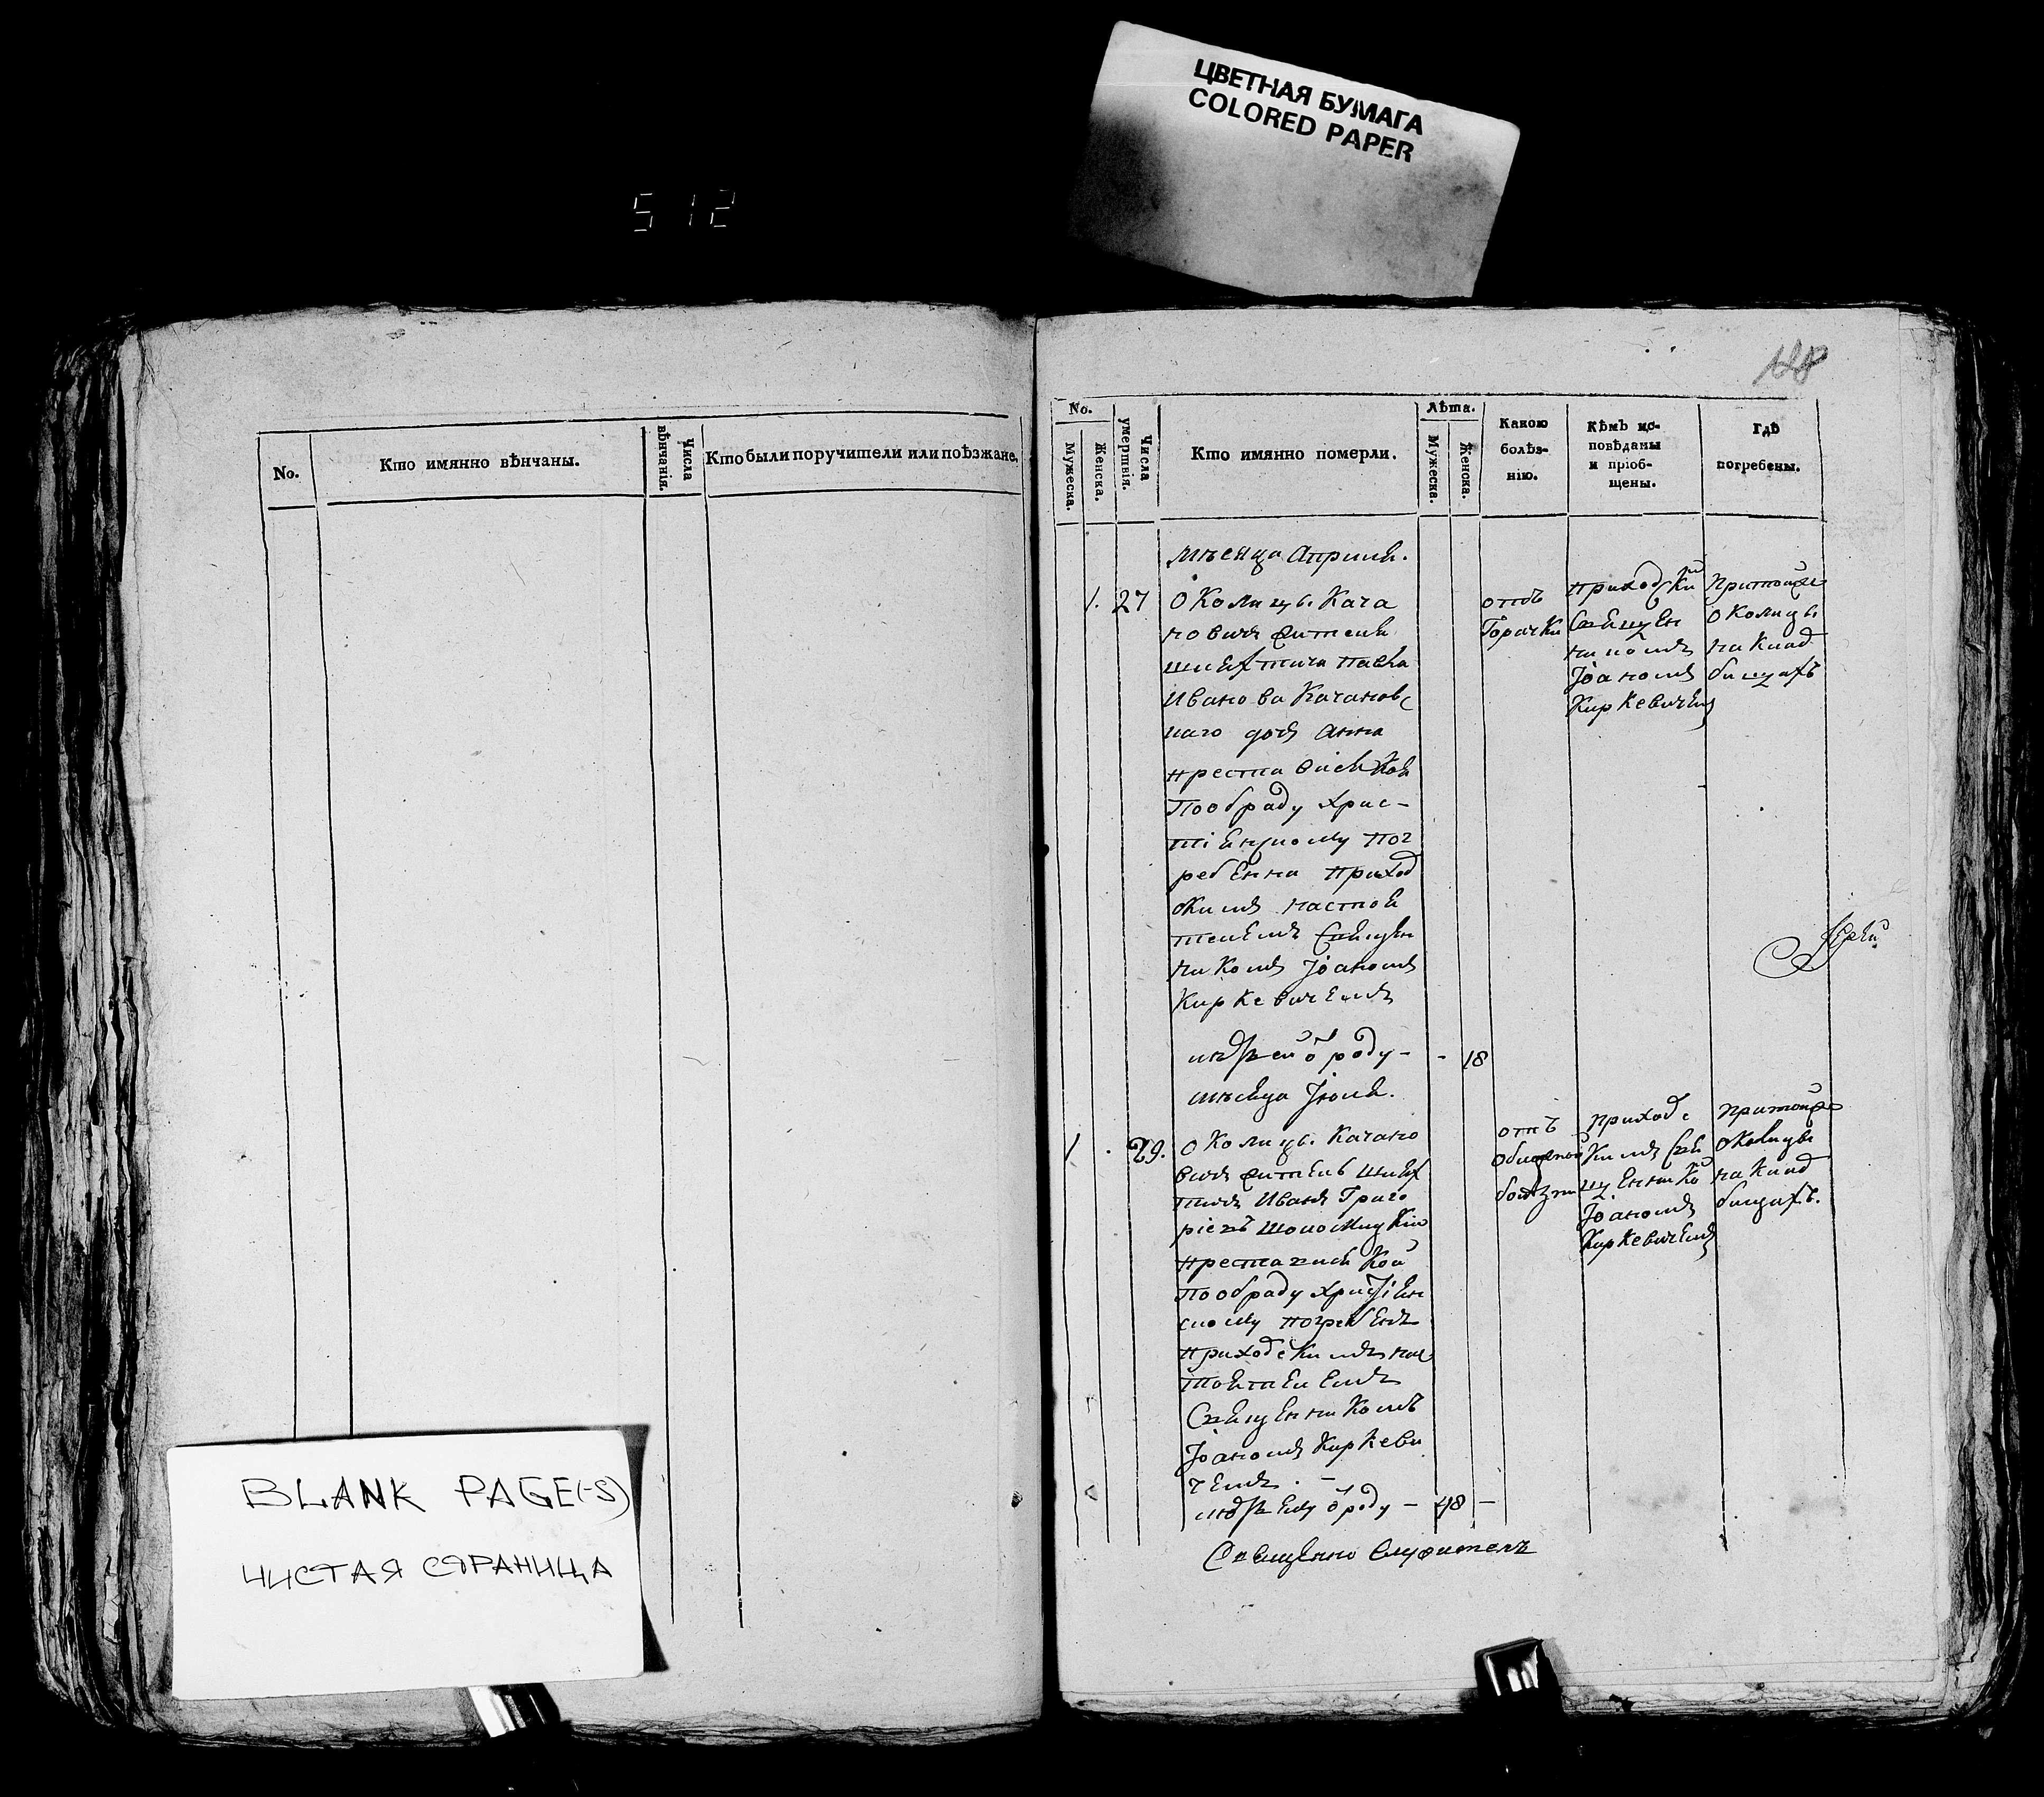 ЦВЕТНАЯ БУМАГА
COLORED PAPER
512
No.
Кто имянно вѣнчаны.
Числа вѣнчанія.
Кто были поручители или поѣзжане.
BLANK PAGE(-S)
ЧИСТАЯ СТРАНИЦА
No.
Мужеска.
Женска.
Числа умертвія.
Кто имянно померли.
Лѣта.
Мужеска.
Женска.
Какою
болѣз-
нію.
Кѣмъ ис-
повѣданы
и пріоб-
щены.
Гдѣ
погребены.
мѣсяца Априля.
1. 27
Околицы Кача
новичъ жителя
шляхтича Павла
Иванова Качановс
каго дочь Анна
преставися коя
по обряду хрис-
тіенскому пог
ребенна приход
скимъ настоя
телемъ Священ
никомъ Іоаномъ
Киркевичемъ
роду - - 18
отъ
Горячки
приходски
Священ
никомъ
Іоаномъ
Киркевичемъ
при той же
околицы
на клад
бищахъ
Іерей
мѣсяца Іюля.
1 29.
Околицы Качано
вичъ житель шлях
тичъ Иванъ Григо
ріевъ
преставися кой
по обряду христіен
скому погребенъ
приходскимъ нас
тоятелемъ
Священникомъ
Іоаномъ Киркеви
чемъ. -
роду - 48 -
отъ
болезни
приходс
кимъ Свя
щеннико
Іоаномъ
Киркевичемъ
при той же
околицы
на клад
бищахъ.
Священно служитель